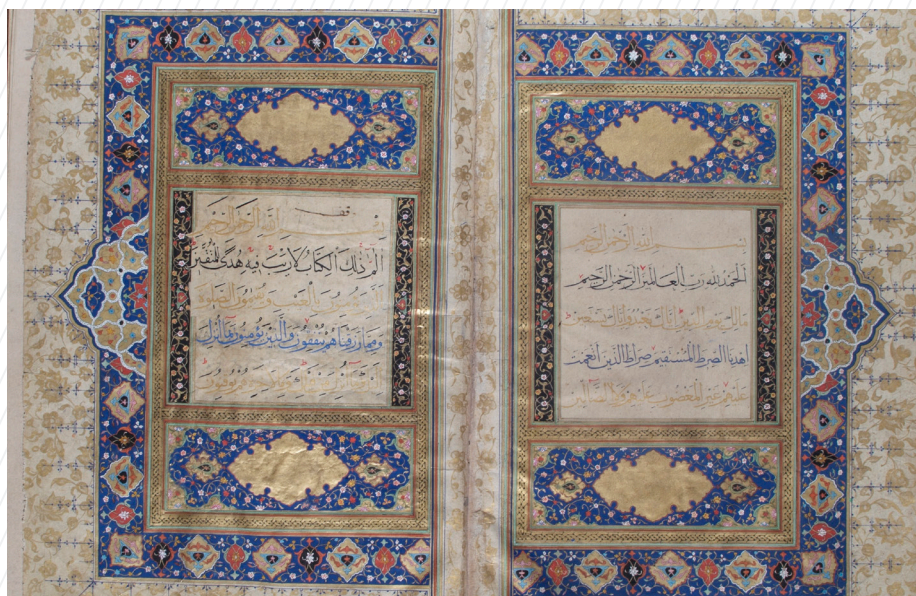 بسم الله الرحمن الرحيم
الحمد لله رب العالمين الرحمن الرحيم
مالك يوم الدين إياك نعبد وإياك نستعين
اهدنا الصراط المستقيم صراط الذين أنعمت
عليهم غير المغضوب عليهم ولا الضالين
بسم الله الرحمن الرحيم
الم ذلك الكتاب لا ريب فيه هدى للمتقين
الذين يؤمنون بالغيب ويقيمون الصلوة
ومما رزقناهم ينفقون والذين يؤمنون بما أنزل